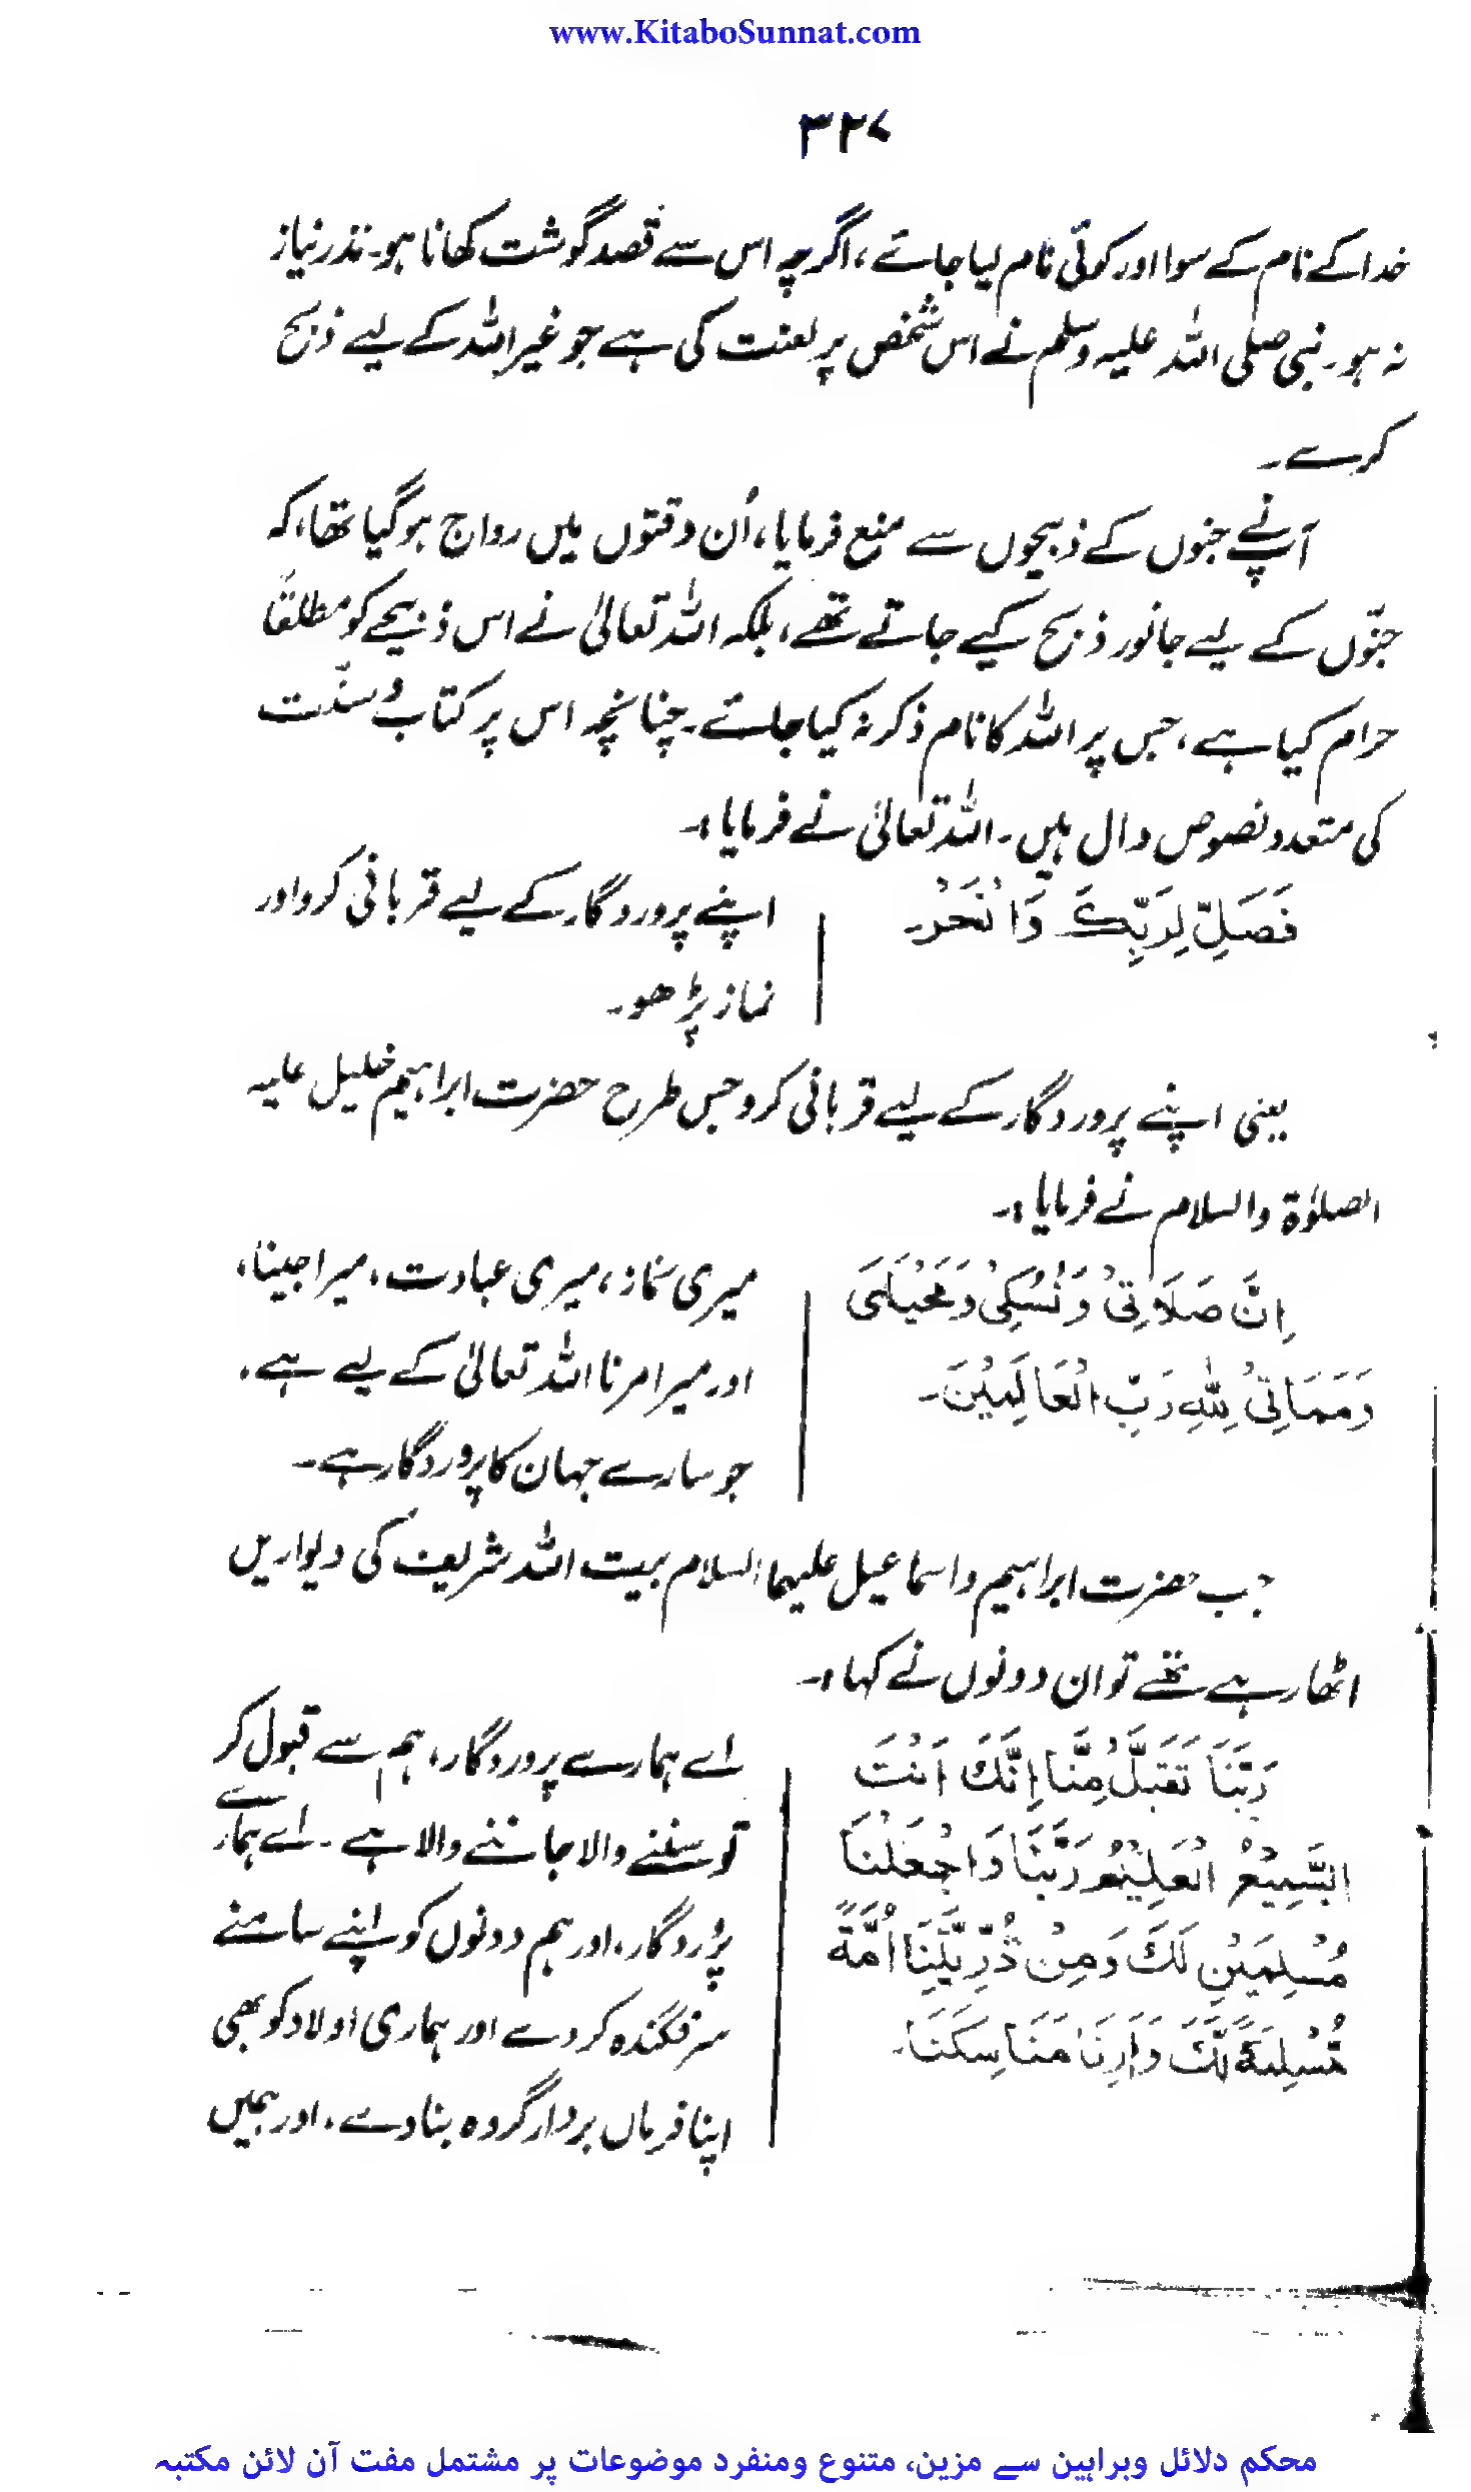 www.KitaboSunnat.com
۳۲۷
خدا کے نام کے سوا اور کوئی نام لیا جائے، اگرچہ اس سے قصد گوشت کھانا ہو۔ نذر نیاز
نہ ہو۔ نبی صلی اللہ علیہ وسلم نے اس شخص پر لعنت کی ہے جو غیر اللہ کے لیے ذبح
کرے۔
آپ نے جنوں کے ذبیحوں سے منع فرمایا، اُن وقتوں میں رواج ہوگیا تھا، کہ
جنّوں کے لیے جانور ذبح کیے جاتے تھے، بلکہ اللہ تعالیٰ نے اس ذبیحے کو مطلقاً
حرام کیا ہے، جس پر اللہ کا نام ذکر نہ کیا جائے۔ چنانچہ اس پر کتاب و سنّت
کی متعدد نصوص دال ہیں۔ اللہ تعالیٰ نے فرمایا:۔
فَصَلِّ لِرَبِّكَ وَانْحَرْ۔
اپنے پروردگار کے لیے قربانی کرو اور
نماز پڑھو۔
یعنی اپنے پروردگار کے لیے قربانی کرو جس طرح حضرت ابراہیم خلیل علیہ
الصلوٰۃ والسلام نے فرمایا:۔
اِنَّ صَلَاتِیْ وَنُسُكِیْ وَمَحْیَایَ
وَمَمَاتِیْ لِلّٰهِ رَبِّ الْعَالَمِیْنَ۔
میری نماز، میری عبادت، میرا جینا،
اور میرا مرنا اللہ تعالیٰ کے لیے ہے،
جو سارے جہان کا پروردگار ہے۔
جب حضرت ابراہیم و اسماعیل علیہما السلام بیت اللہ شریف کی دیواریں
اٹھا رہے تھے تو ان دونوں نے کہا:۔
رَبَّنَا تَقَبَّلْ مِنَّا اِنَّكَ اَنْتَ
السَّمِیْعُ الْعَلِیْمُ رَبَّنَا وَاجْعَلْنَا
مُسْلِمَیْنِ لَكَ وَمِنْ ذُرِّیَّتِنَا اُمَّةً
مُّسْلِمَةً لَّكَ وَاَرِنَا مَنَاسِكَنَا۔
اے ہمارے پروردگار، ہم سے قبول کر
تو سننے والا جاننے والا ہے۔ اے ہمارے
پروردگار، اور ہم دونوں کو اپنے سامنے
سرفگندہ کردے اور ہماری اولاد کو بھی
اپنا فرماں بردار گروہ بنا دے، اور ہمیں
محکم دلائل وبراہین سے مزین، متنوع ومنفرد موضوعات پر مشتمل مفت آن لائن مکتبہ